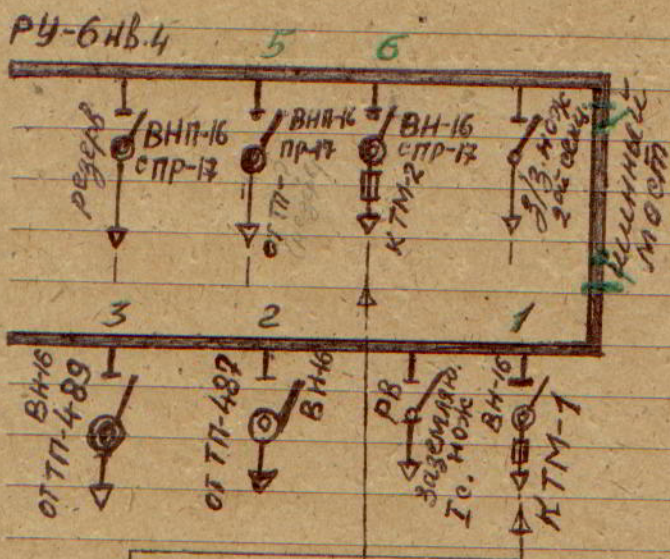 РУ-6 кв.
4
5
6
резерв
ВНП-16
с ПР-17
ВНП-16
ПР-17
от ТП-
ВН-16
с ПР-17
К ТМ-2
З/З. нож
2ой секц.
шинный
мост
3
2
1
ВН-16
от ТП-489
от ТП-487
ВН-16
РВ
заземляю.
I с. нож
ВН-16
К ТМ-1